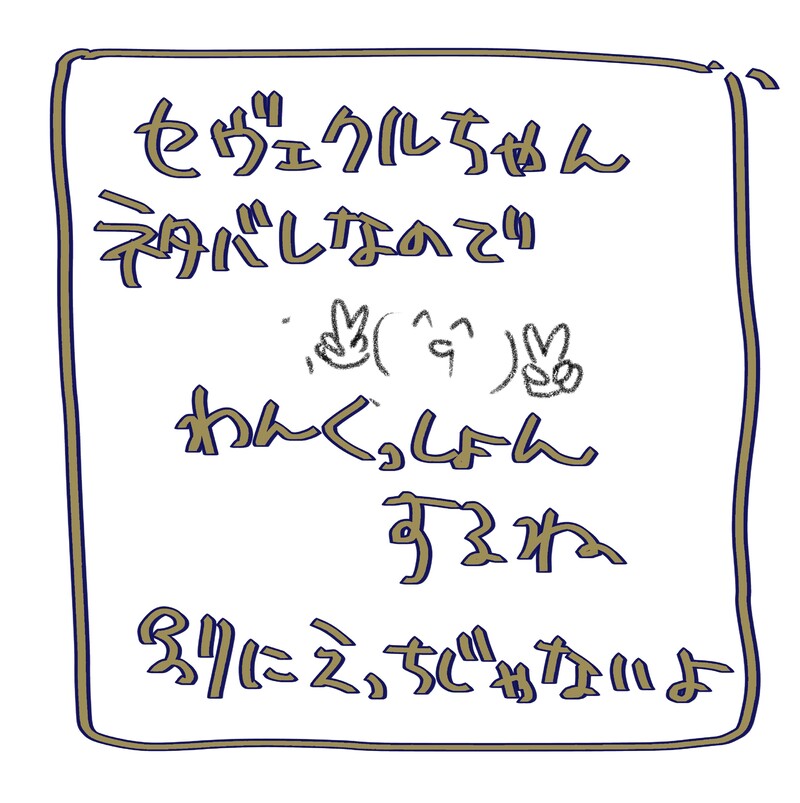 セヴェクルちゃん
ネタバレなので
✌( ^q^ )✌
わんくっしょん
するね
別にえっちじゃないよ